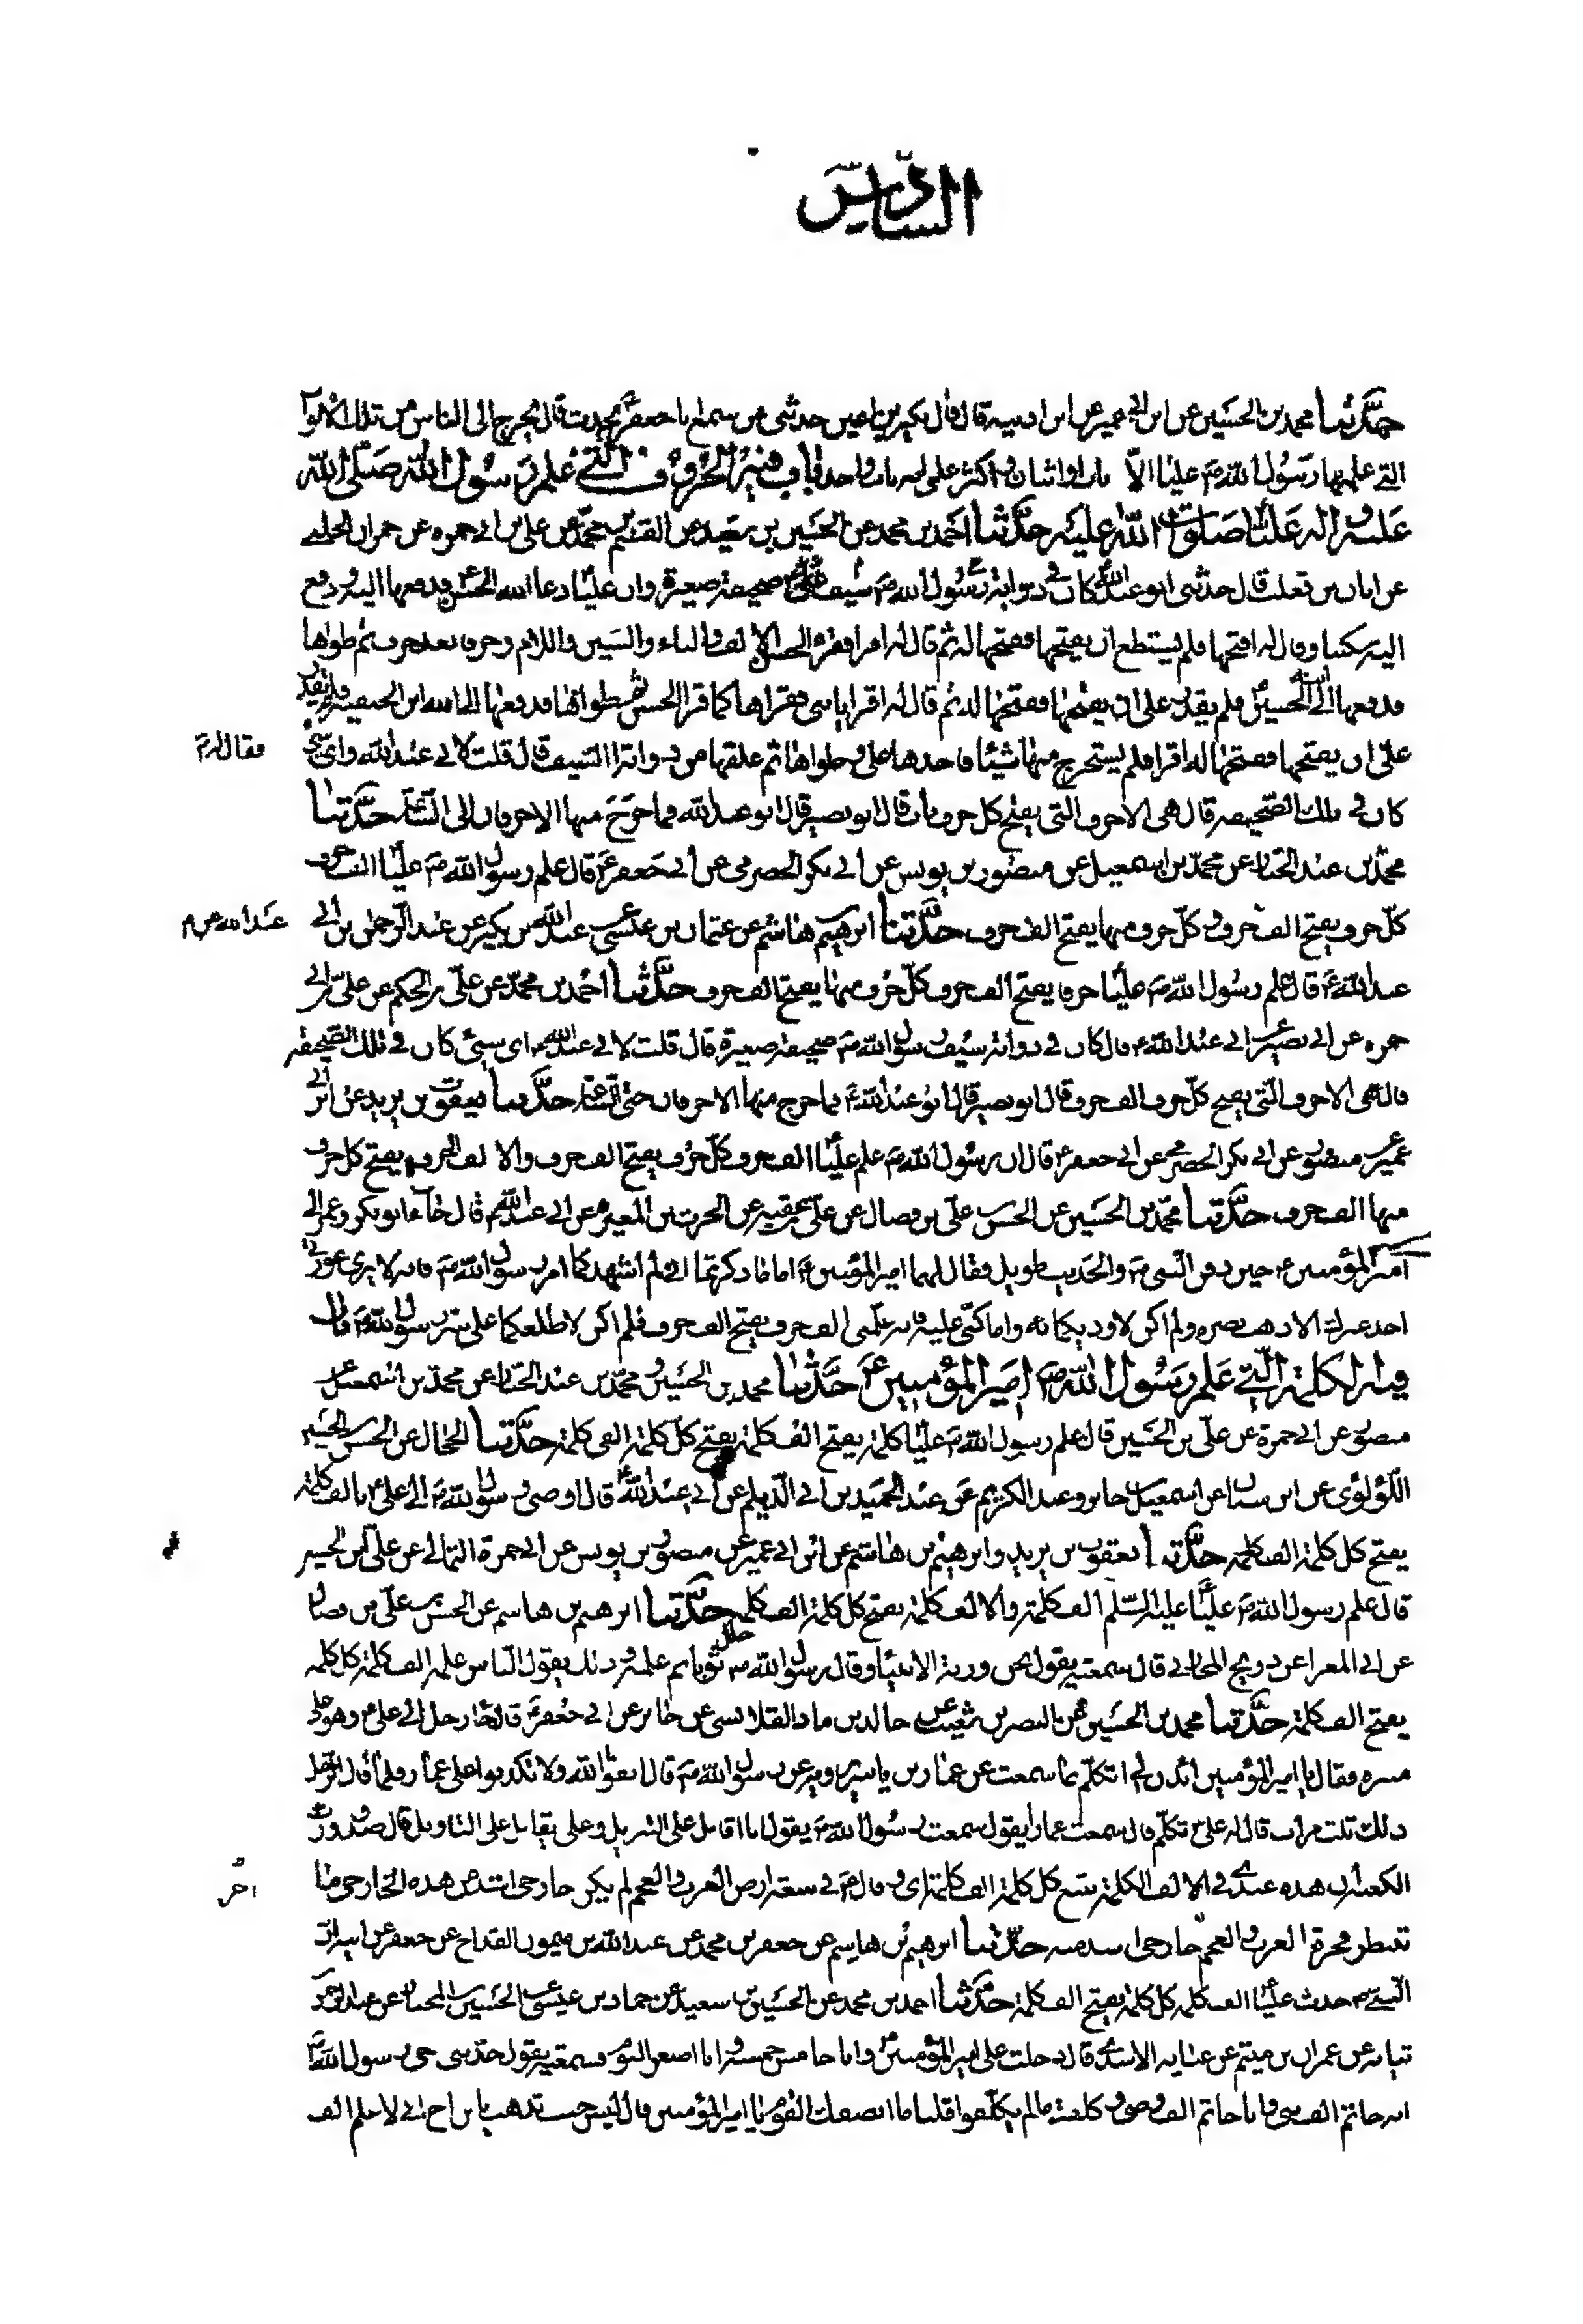 السادس
حدثنا محمد بن الحسين عن ابن ابي عمير عن ابن اذينه قال قال بكير بن اعين حدثني من سمع ابا جعفر ع يحدث قال لم يخرج الى الناس من تلك الابواب
التي علمها رسول الله ص عليا الا باب او اثنان و اكثر علمي انه باب واحد باب فيه الحروف التي علم رسول الله صلى الله
عليه واله عليا صلوات الله عليه حدثنا احمد بن محمد عن الحسين بن سعيد عن القسم بن محمد عن علي بن ابي حمزه عن عمران الحلبي
عن ابان بن تغلب قال حدثني ابو عبد الله كان في ذوابة سيف رسول الله ص صحيفة صغيرة وان عليا دعا ابنه الحسن فدفعها اليه ودفع
اليه سكينا وقال له افتحها فلم يستطع ان يفتحها ففتحها له ثم قال له اقرا فقرا الحسن الالف والباء والسين واللام وحرفا بعد حرف ثم طواها
فدفعها الى الحسين فلم يقدر على ان يفتحها ففتحها له ثم قال له اقرا يا بني فقراها كما قرا الحسن ثم طواها فدفعها الى ابنه ابن الحنفيه فلم يقدر
على ان يفتحها ففتحها له اقرا فلم يستخرج منها شيئا فاخذها علي وطواها ثم علقها من ذوابة السيف قال قلت لابي عبد الله واي شي
فقال له
كان في تلك الصحيفه قال هي الاحرف التي يفتح كل حرف باب قال ابو بصير قال ابو عبد الله فما خرج منها الا حرفان الى الساعة حدثنا
محمد بن عبد الجبار عن محمد بن اسمعيل عن منصور بن يونس عن ابي بكر الحضرمي عن ابي جعفر ع قال علم رسول الله ص عليا الف حرف
كل حرف يفتح الف حرف وكل حرف منها يفتح الف حرف حدثنا ابرهيم بن هاشم عن عثمان بن عيسى عن عبد الله بن بكير عن عبد الرحمن بن ابي
عبد الله عن
عبد الله ع قال علم رسول الله ص عليا حرفا يفتح الف حرف كل حرف منها يفتح الف حرف حدثنا احمد بن محمد عن علي بن الحكم عن علي بن ابي
حمزه عن ابي بصير عن ابي عبد الله ع قال كان في ذوابة سيف رسول الله ص صحيفة صغيرة قال قلت لابي عبد الله ع اي شي كان في تلك الصحيفه
قال هي الاحرف التي يفتح كل حرف الف حرف قال ابو بصير قال ابو عبد الله ع فما خرج منها الا حرفان حتى الساعة حدثنا يعقوب بن يزيد عن ابن ابي
عمير عن منصور عن ابي بكر الحضرمي عن ابي جعفر ع قال ان رسول الله ص علم عليا الف حرف كل حرف يفتح الف حرف والالف الحرف يفتح كل حرف
منها الف حرف حدثنا محمد بن الحسين عن الحسن بن علي بن فضال عن علي بن عقبه عن الحرث بن المغيره عن ابي عبد الله ع قال جاء ابو بكر وعمر الى
امير المؤمنين ع حين دفن النبي ص والحديث طويل فقال لهما امير المؤمنين ع اما ما ذكرتما اني لم اشهدكما امر رسول الله ص فانه لا يرى عورتي
احد غيرك الا ذهب بصره ولم اكن لاوذيكما به واما كبي عليه فانه علمني الف حرف يفتح الف حرف فلم اكن لاطلعكما على سر رسول الله ص باب
فيه الكلمة التي علم رسول الله ص امير المؤمنين ع حدثنا محمد بن الحسين ومحمد بن عبد الجبار عن محمد بن اسمعيل عن
منصور عن ابي حمزة عن علي بن الحسين قال علم رسول الله ص عليا كلمة يفتح الف كلمة يفتح كل كلمة الف كلمة حدثنا الحجال عن الحسن بن الحسين
اللؤلؤي عن ابن سنان عن اسمعيل بن جابر وعبد الكريم عن عبد الحميد بن ابي الديلم عن ابي عبد الله قال اوصى رسول الله ص الى علي ع بالف كلمة
يفتح كل كلمة الف كلمة حدثنا يعقوب بن يزيد وابرهيم بن هاشم عن ابن ابي عمير عن منصور بن يونس عن ابي حمزة الثمالي عن علي بن الحسين
قال علم رسول الله ص عليا عليه السلم الف كلمة والالف كلمة يفتح كل كلمة الف كلمة حدثنا ابرهيم بن هاشم عن الحسن بن علي بن فضال
عن ابي المغرا عن ذريح المحاربي قال سمعته يقول نحن ورثة الانبياء وقال رسول الله ص جلل ثوبا ثم علمه وذلك يقول الناس علمه الف كلمة كل كلمه
يفتح الف كلمة حدثنا محمد بن الحسين عن النضر بن شعيب عن خالد بن ماد القلانسي عن جابر عن ابي جعفر ع قال جاء رجل الى علي ع وهو على
منبره فقال يا امير المؤمنين ائذن لي اتكلم بما سمعت عن عمار بن ياسر يرويه عن رسول الله ص قال اتقوا الله ولا تكذبوا على عمار فلما قال الرجل
ذلك ثلث مرات قال له علي تكلم قال سمعت عمارا يقول سمعت رسول الله ص يقول انا اقاتل على التنزيل وعلي يقاتل على التاويل قال صدق ورب
الكعبة ان هذه عندي في الالف الكلمة تتبع كل كلمة الف كلمة
اخر
حدثنا ابرهيم بن هاشم عن جعفر بن محمد عن عبد الله بن ميمون القداح عن جعفر عن ابيه ان
النبي ص حدث عليا الف كلمه كل كلمة يفتح الف كلمة حدثنا احمد بن محمد عن الحسين بن سعيد عن حماد بن عيسى عن الحسين بن المختار عن عبد الرحمن
عن عمران بن ميثم عن عبايه الاسدي قال دخلت على امير المؤمنين وانا خامس خمسة وانا اصغر القوم فسمعته يقول حدثني اخي رسول الله ص
انه خاتم الف نبي وانا خاتم الف وصي وكلفت ما لم يكلفوا قلنا ما انصفك القوم يا امير المؤمنين قال ليس حيث تذهب يا بن اخ اني لاعلم الف